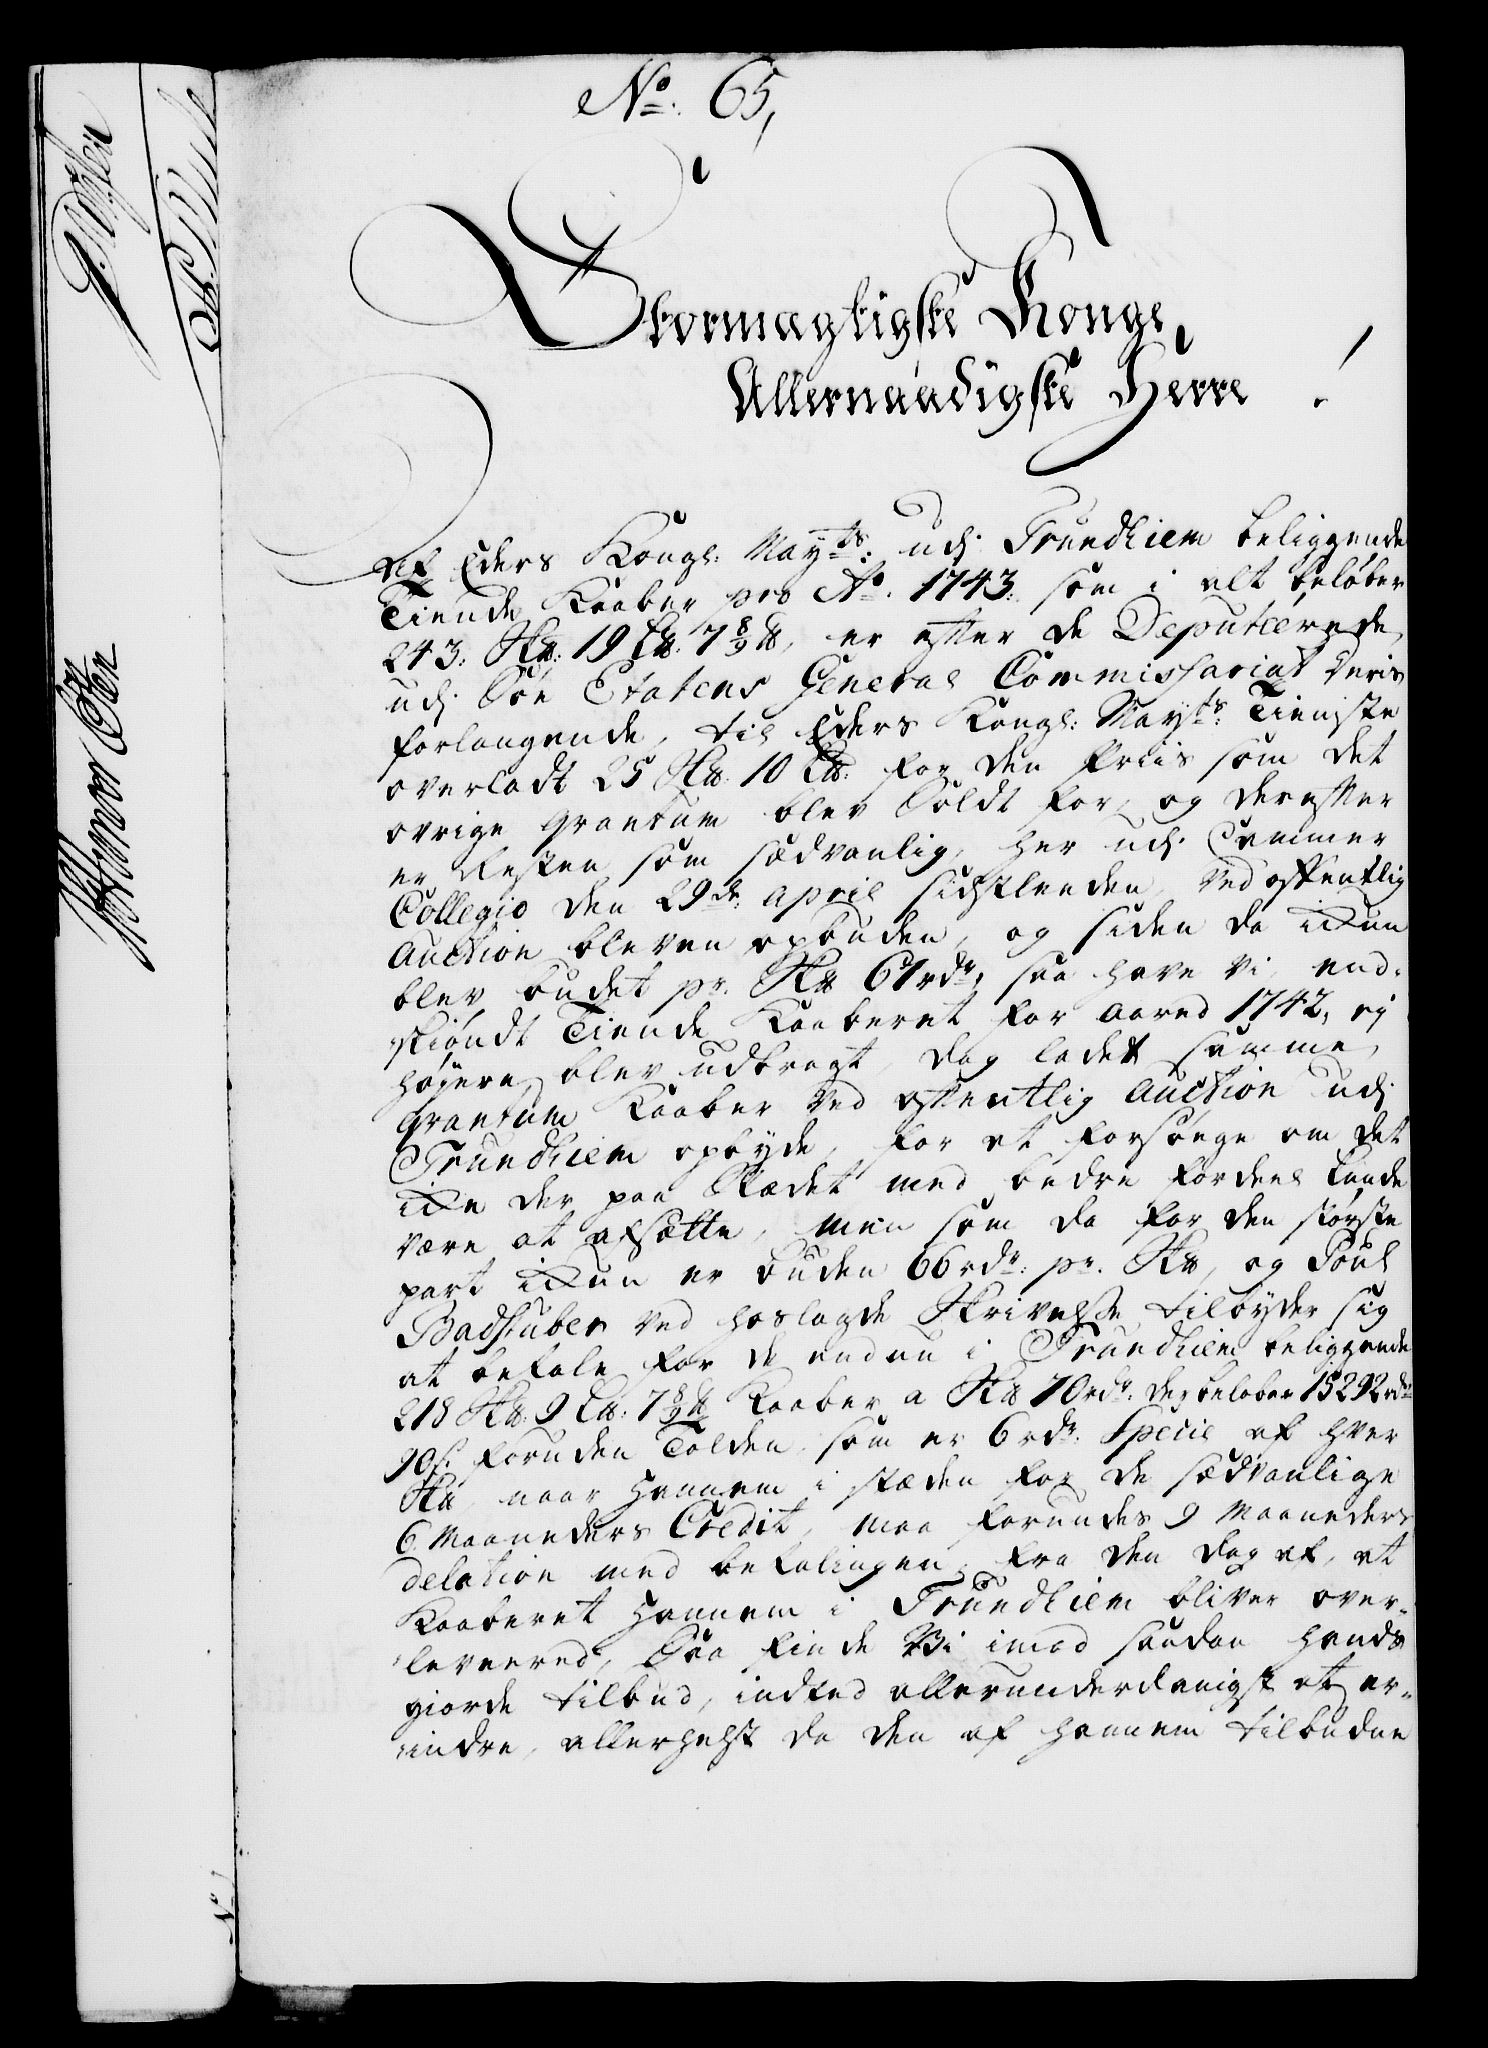 No. 65,
Stormægtigste Konge,
Allernaadigste Herre!
Af Eders Kongl: Mayts: udj Trundhiem beliggende
Tiende Kaaber pro Ao. 1743. som i alt beløber
243. S℔. 19 L℔. 7 8/9 ℔, er efter de Deputerede
udj Søe Etatens General Commissariat deris
forlangende, til Eders Kongl: Mayts: Tieniste
overladt 25 S℔. 10 L℔. for den Priis som det
øvrige qvantum blev Soldt for, og derefter
er Resten som sædvanlig, her udj Cammer
Collegio den 29de: April sidstleeden ved offentlig
Auction bleven opbuden, og siden da ikkun
blev budet pr. S℔ 61 rdr, saa have vi, end-
skiøndt Tiende Kaaberet for Aared 1742, ej
højere blev udbragt, dog ladet samme
qvantum Kaaber ved offentlig Auction udj
Trundhiem opbyde, for at forsøge om det
ikke der paa Stædet med bedre fordeel kunde
være at afsætte, men som da for den største
part ikkun er buden 66 rdr: pr. S℔, og Poul
Badstuber ved hoslagde Skrivelse tilbyder sig
at betale for de endnu i Trundhiem beliggende
218 S℔. 9 L℔: 7 8/9 ℔ Kaaber a S℔ 70 rdr: der beløber 15292 rdr
90 s. foruden Tolden, som er 6 rdr. Specie af hver
S℔, naar Hannem i stæden for de sædvanlige
6 Maaneders Credit, maa forundes 9 Maaneders
delation med betalingen, fra den dag af, at
Kaaberet Hannem i Trundhiem bliver over-
leveered, Saa finde Vi imod saadan hands
giorde tilbud, indtet allerunderdanigst at er-
indre, allerhelst da den af hannem tilbudne